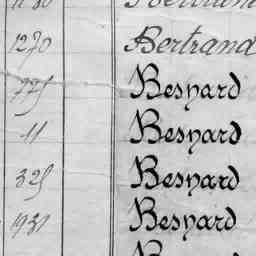 1270 Bertrand
775 Besnard
11 Besnard
325 Besnard
1931 Besnard